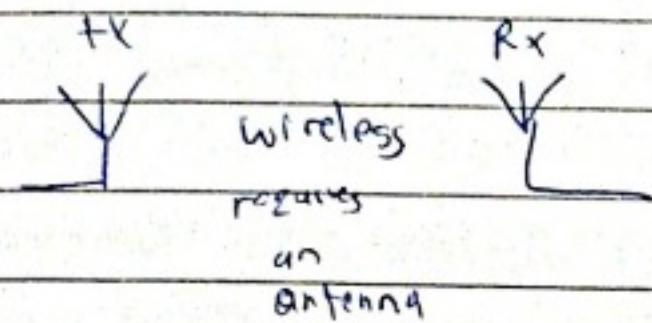 tx Rx
wireless
requires
an
antenna